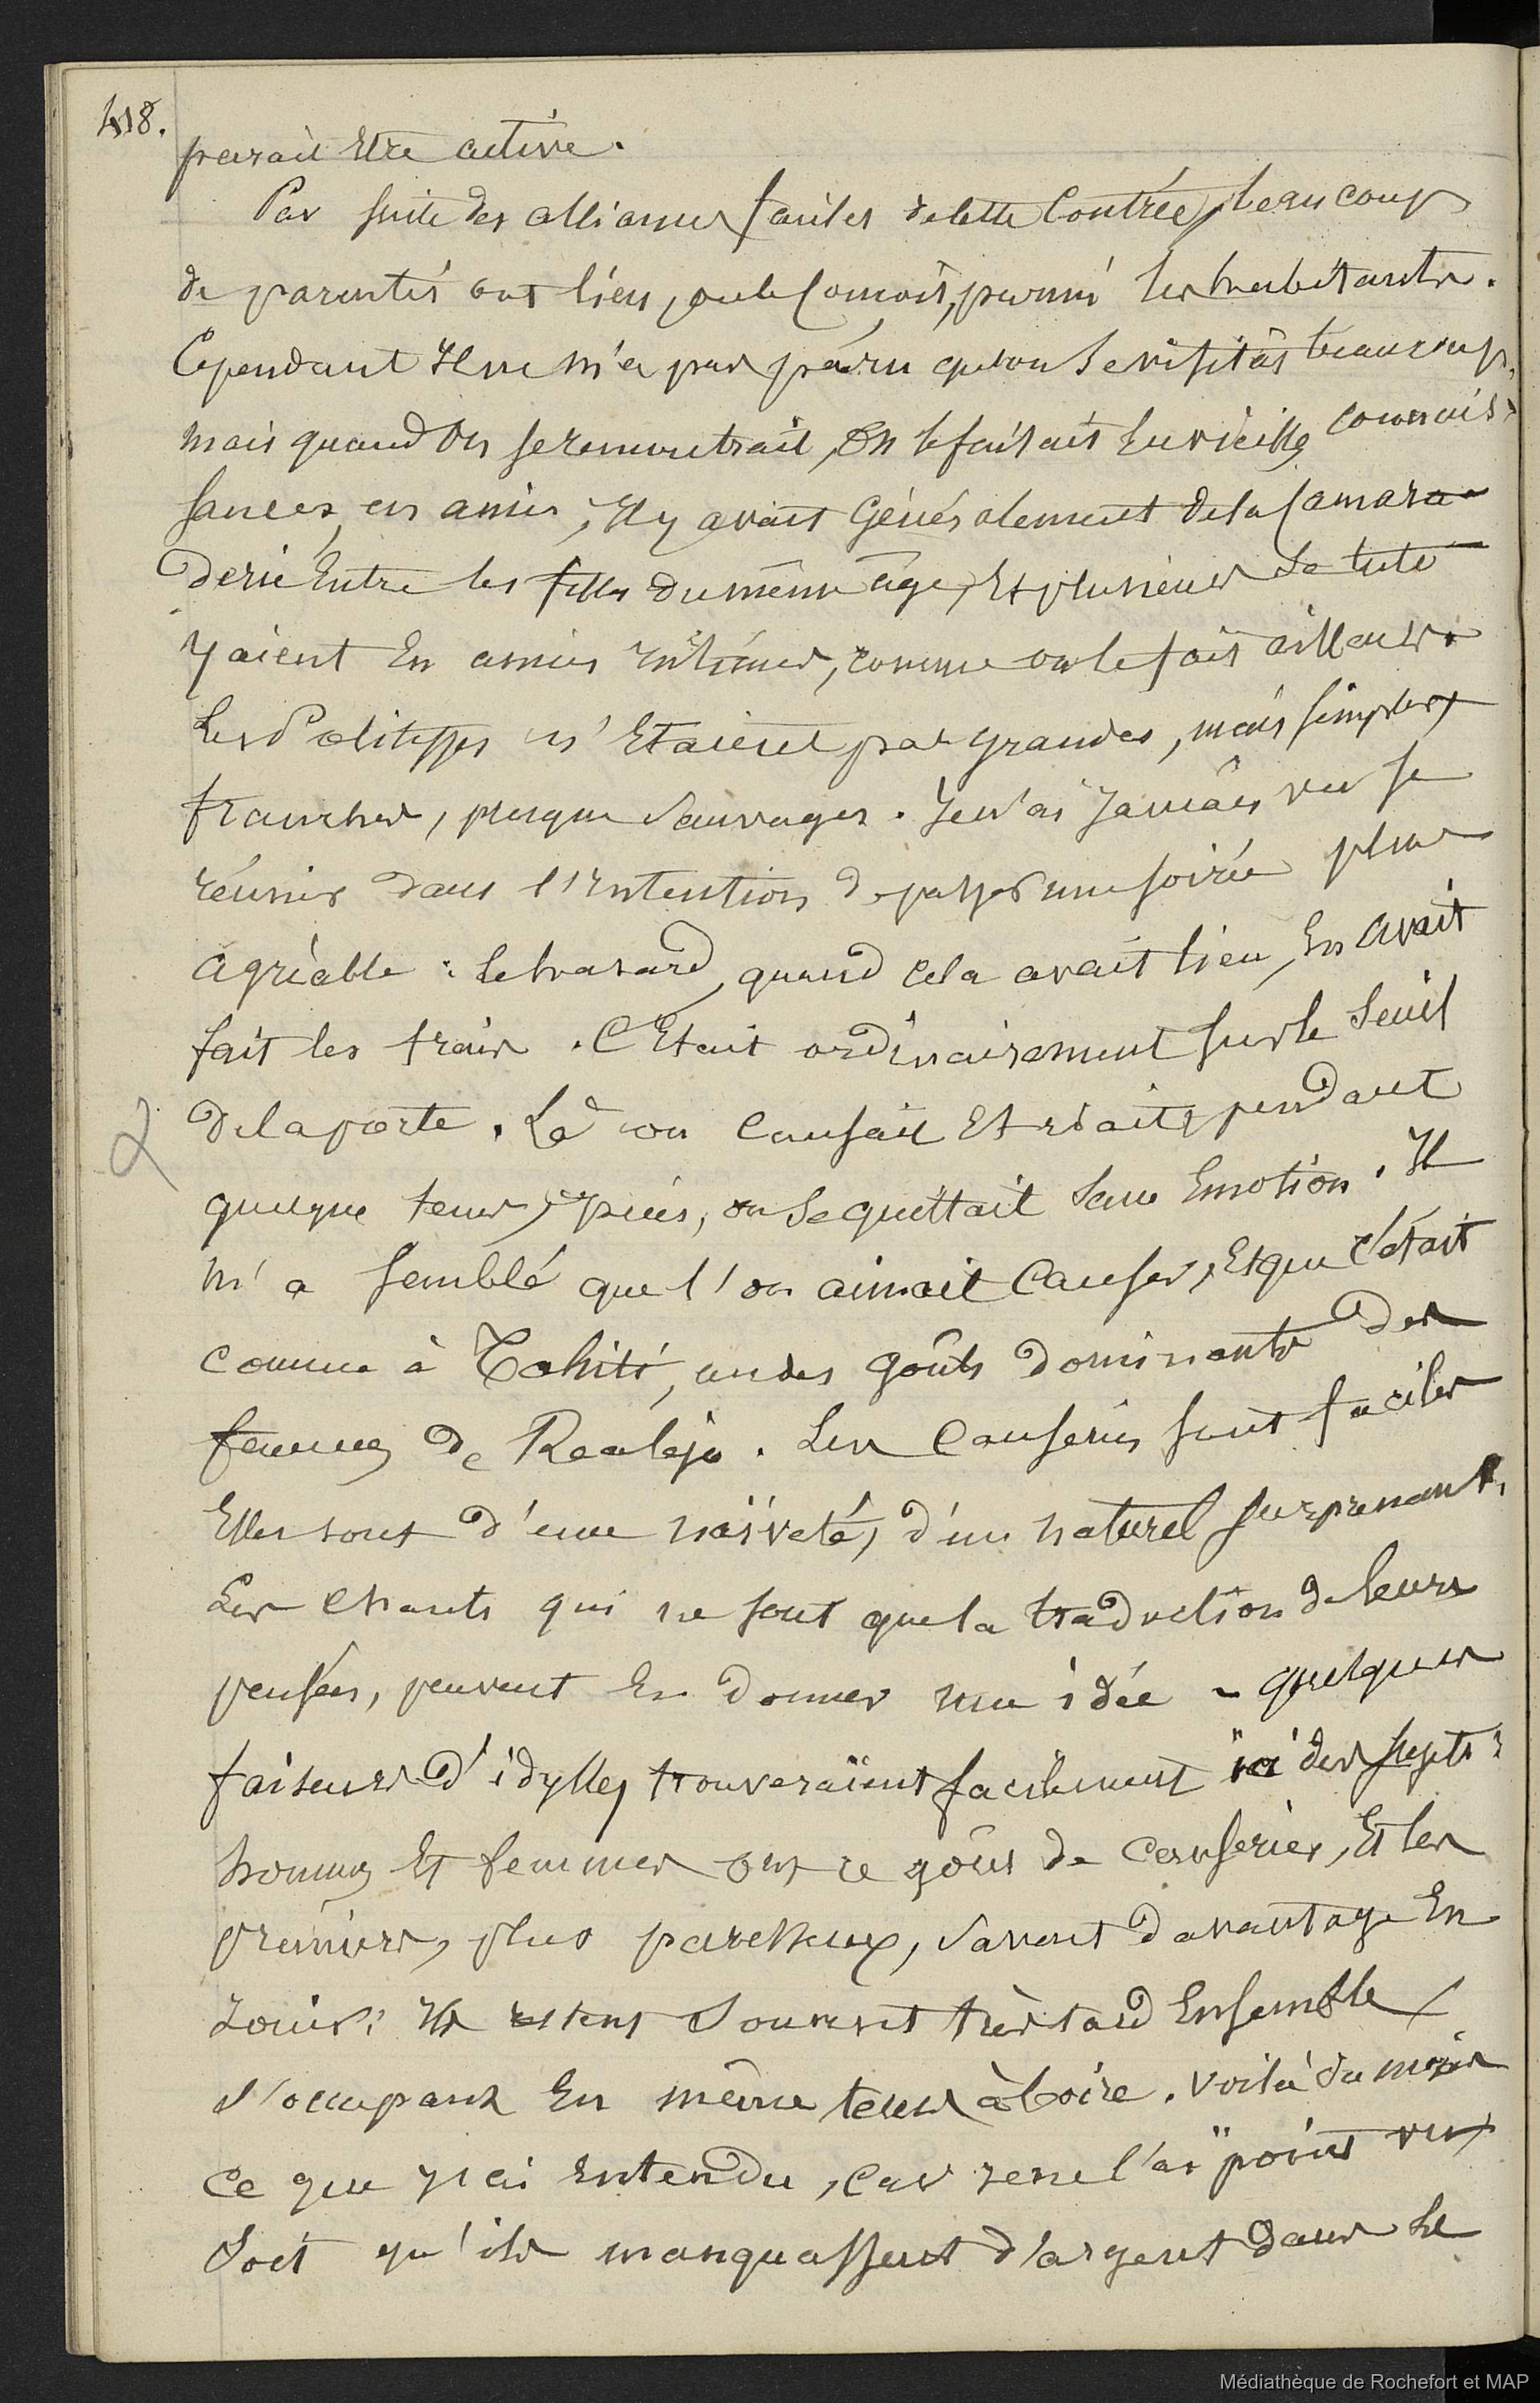 418.
parait Etre active.
Par suite des alliances faciles de cette Contrée, beaucoup
de parentés ont lieu, on le conçoit, parmi les habitants.
Cependant Il ne m'a pas paru qu'on se visitâs beaucoup,
mais quand On se rencontrait, On le faisait En vieilles connais-
sances, en amis, Il y avait Généralement de la Camara-
derie Entre les filles du même âge, Et plusieurs Se tuto-
yaient En amies intimes, comme on le fait ailleurs.
Les Politesses n'Etaient pas grandes, mais simples,
franches, presque Sauvages. Je n'ai Jamais vu se
réunir dans l'Intention de passer une soirée plus
agréable : le hasard, quand cela avait lieu, En avait
fait les frais. C'Etait ordinairement sur le Seuil
de la porte. Là on causait Et riait, pendant
quelque tems, puis, on se quittait Sans Emotion. Il
m'a semblé que l'on aimait Causer, Et que c'était
comme à Tahiti, un des goûts dominants des
femmes de Realejo. Les Causeries sont faciles
Elles sont d'une naïveté, d'un naturel surprenant.
Les chants qui ne sont que la traduction de leurs
pensées, peuvent En donner une idée - quelques
faiseurs d'idylles trouveraient facilement ici des sujets :
hommes Et femmes ont ce goût de Causeries, Et les
premiers, plus paresseux, Savent davantage En
Jouir ; Ils restent Souvent très tard Ensemble,
S'occupant En même tems à boire. Voilà du moins
ce que J'ai Entendu, car Je ne l'ai point vu,
Soit qu'ils manquassent d'argent dans le
Médiathèque de Rochefort et MAP